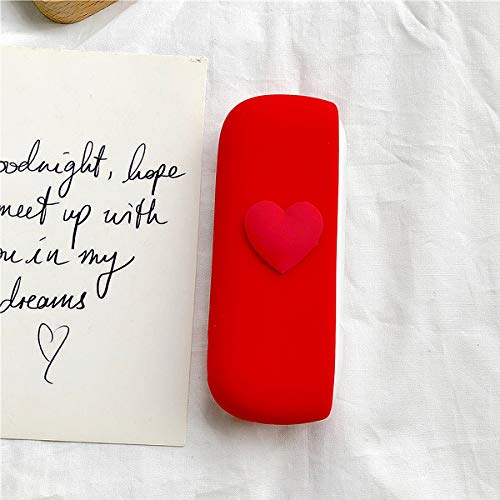 oodnight, hope
meet up with
ou in my
dreams